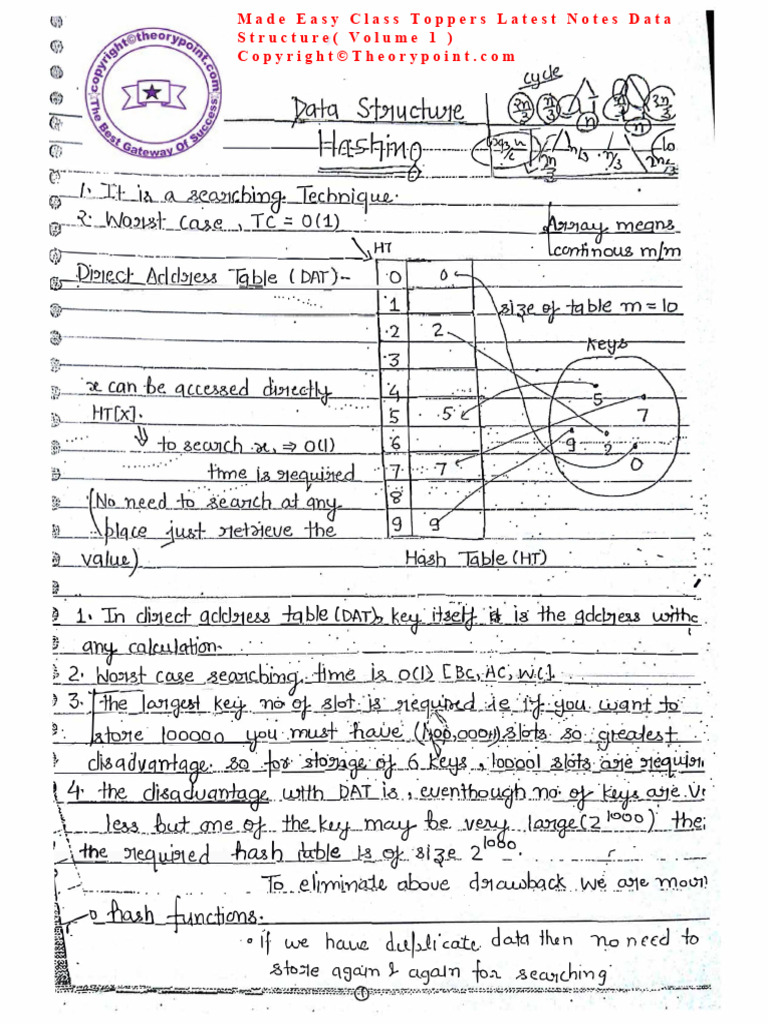 Made Easy Class Toppers Latest Notes Data
Structure( Volume 1 )
Copyright©Theorypoint.com
copyright©theorypoint.com
The Best Gateway Of Success
cycle
Data Structure
Hashing
n
n
n/3
n/3
1. It is a searching Technique.
2. Worst case, TC = O(1)
Array means
continous m/m
HT
Direct Address Table (DAT)-
0 0
1
size of table m = 10
2 2
Keys
3
x can be accessed directly
4
5
HT[X].
5 5
7
to search x, ⇒ O(1)
6
9 2
time is required
7 7
0
(No need to search at any
8
place just retrieve the
9 9
value)
Hash Table (HT)
1. In direct address table (DAT), key itself is the address
any calculation.
2. Worst case searching time is O(1) [BC, AC, WC].
3. the largest key no of slot is required ie if you want to
store 100000 you must have (100,000+1) slots so greatest
disadvantage. so for storage of 6 keys, 100001 slots are
4. the disadvantage with DAT is, eventhough no of keys are
less but one of the key may be very large (2^1000)
the required hash table is of size 2^1000.
To eliminate above drawback we are
hash functions.
• if we have duplicate data then no need to
store again & again for searching
1